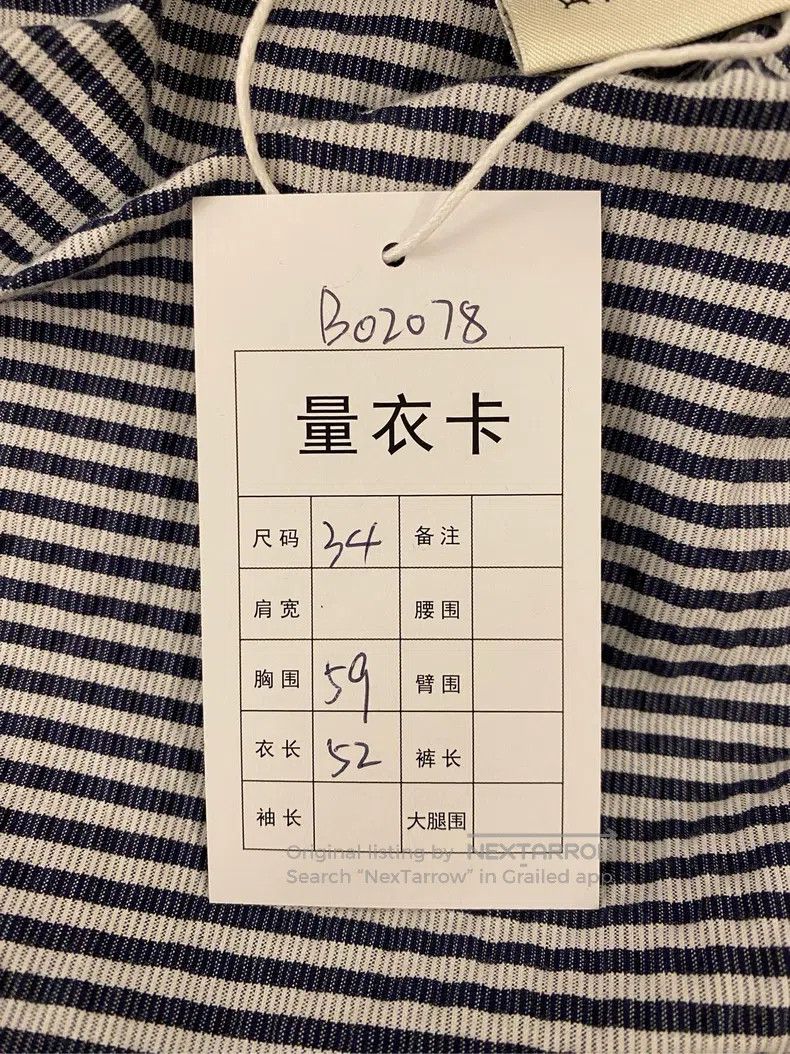 B02078
量衣卡
尺码 34 备注
肩宽 腰围
胸围 59 臂围
衣长 52 裤长
袖长 大腿围
Original listing by NEXTARROW
Search "NexTarrow" in Grailed app